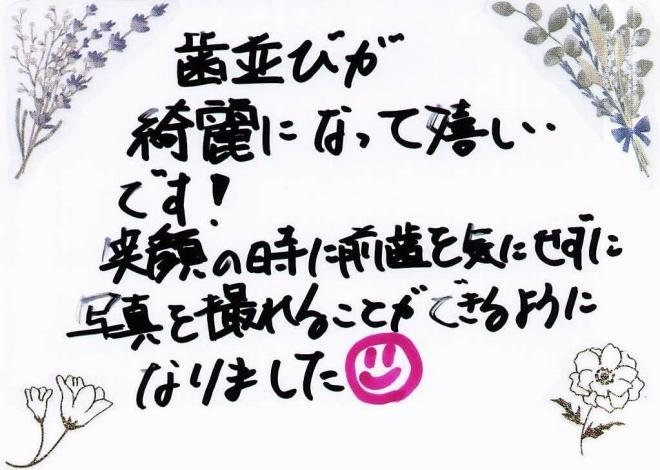 歯並びが
綺麗になって嬉しい
です!
笑顔の時に前歯を気にせずに
写真を撮れることができるように
なりました